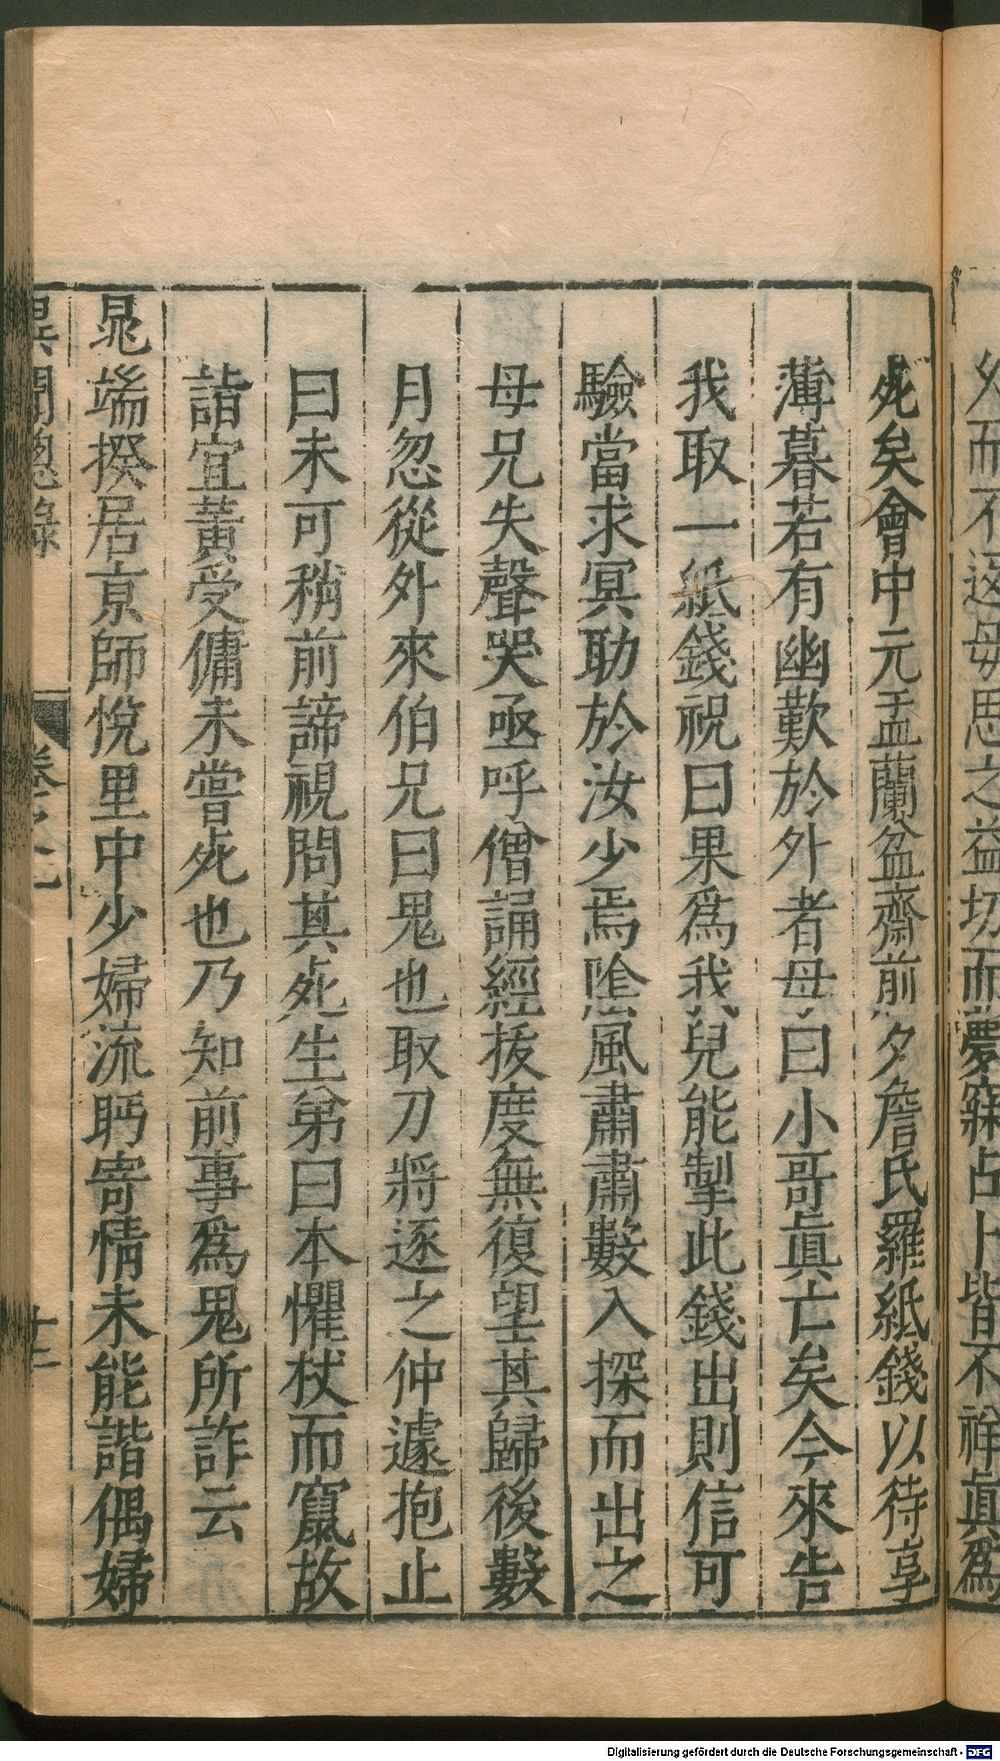 外而不返母思之益切而夢寐占卜皆不祥眞爲
死矣會中元盂蘭盆齋前夕詹氏羅紙錢以待享
薄暮若有幽歎於外者母曰小哥眞亡矣今來告
我取一紙錢祝曰果爲我兒能掣此錢出則信可
驗當求冥助於汝少焉陰風肅肅數入探而出之
母兄失聲哭亟呼僧誦經拔度無復望其歸後數
月忽從外來伯兄曰鬼也取刀將逐之仲遽抱止
曰未可稍前諦視問其死生弟曰本懼杖而竄故
詣宜黃受傭未嘗死也乃知前事爲鬼所詐云
晁端揆居京師悅里中少婦流眄寄情未能諧偶婦
異聞總錄 卷之一 十三
Digitalisierung gefördert durch die Deutsche Forschungsgemeinschaft - DFG